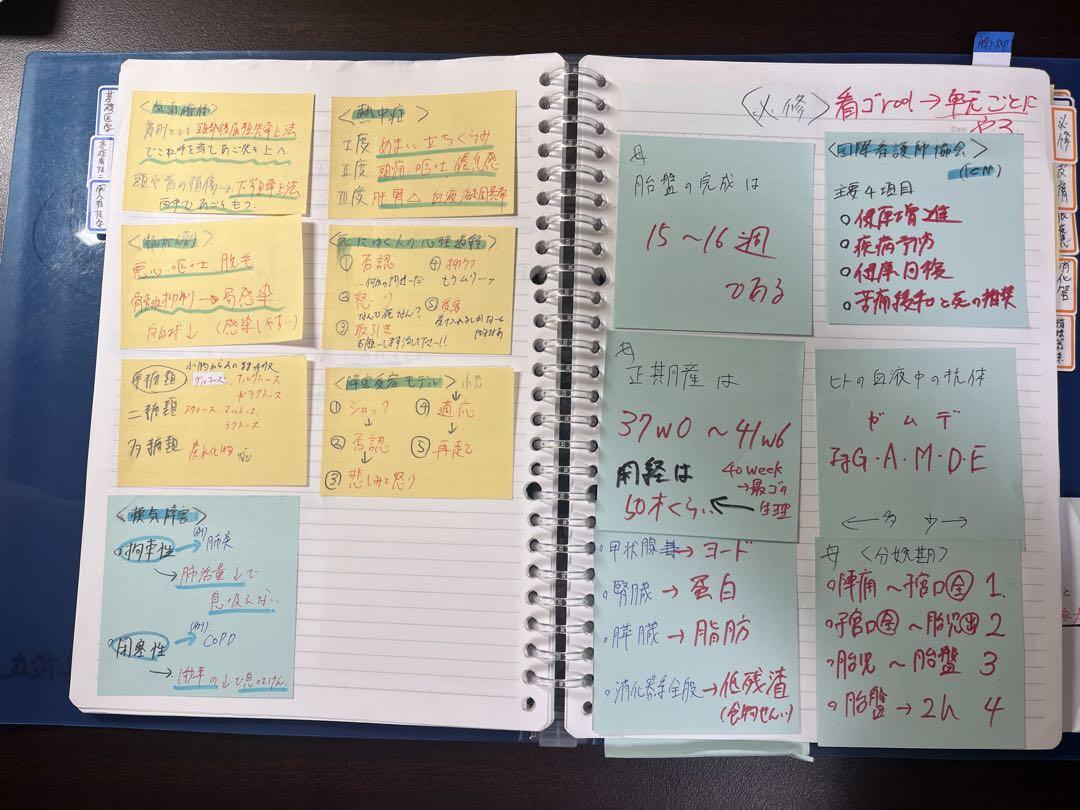 <気道確保>
原則として頭部後屈顎先挙上法
でこに手を当てあご先を上へ
頭や首の損傷→下顎挙上法
両手であごをもつ。
<熱中症>
Ⅰ度 めまい 立ちくらみ
Ⅱ度 頭痛 嘔吐 倦怠感
Ⅲ度 肝腎△ 血液凝固異常
<抗がん剤>
悪心 嘔吐 脱毛
骨髄抑制→易感染
白血球↓ (感染しやすい…)
<死にゆく人の心理過程>
① 否認
② 怒り
なんで死なん?
③ 取引き
④ 抑うつ
もうムリーッ
⑤ 受容
単糖類
小腸からのみ吸収
グルコース フルクトース
ガラクトース
二糖類 スクロース マルトース
ラクトース
多糖類 炭水化物など
<障害受容モデル>
① ショック
↓
② 否認
↓
③ 悲しみと怒り
④ 適応
↓
⑤ 再起
<換気障害>
○拘束性→(例)肺炎
→肺活量↓で
息吸えない…
○閉塞性→(例)COPD
→1秒率の↓で息はけん。
<必修> 看ゴroo→単元ごとに
やる
Date
母
胎盤の完成は
15〜16週
である
<国際看護師協会>
(ICN)
主要4項目
○健康増進
○疾病予防
○健康回復
○苦痛緩和と死の推奨
母
正期産は
37w0〜41w6
閉経は
50才くらい←
40week
→最ゴの
生理
ヒトの血液中の抗体
ガ ム デ
G・A・M・D・E
←多 少→
○甲状腺→ヨード
○腎臓→蛋白
○膵臓→脂肪
○消化器系全般→低残渣
(食物せんい)
母 <分娩期>
○陣痛〜子宮口全 1.
○子宮口全〜胎児出 2
○胎児〜胎盤 3
○胎盤→2h 4
必修
皮膚
消化管